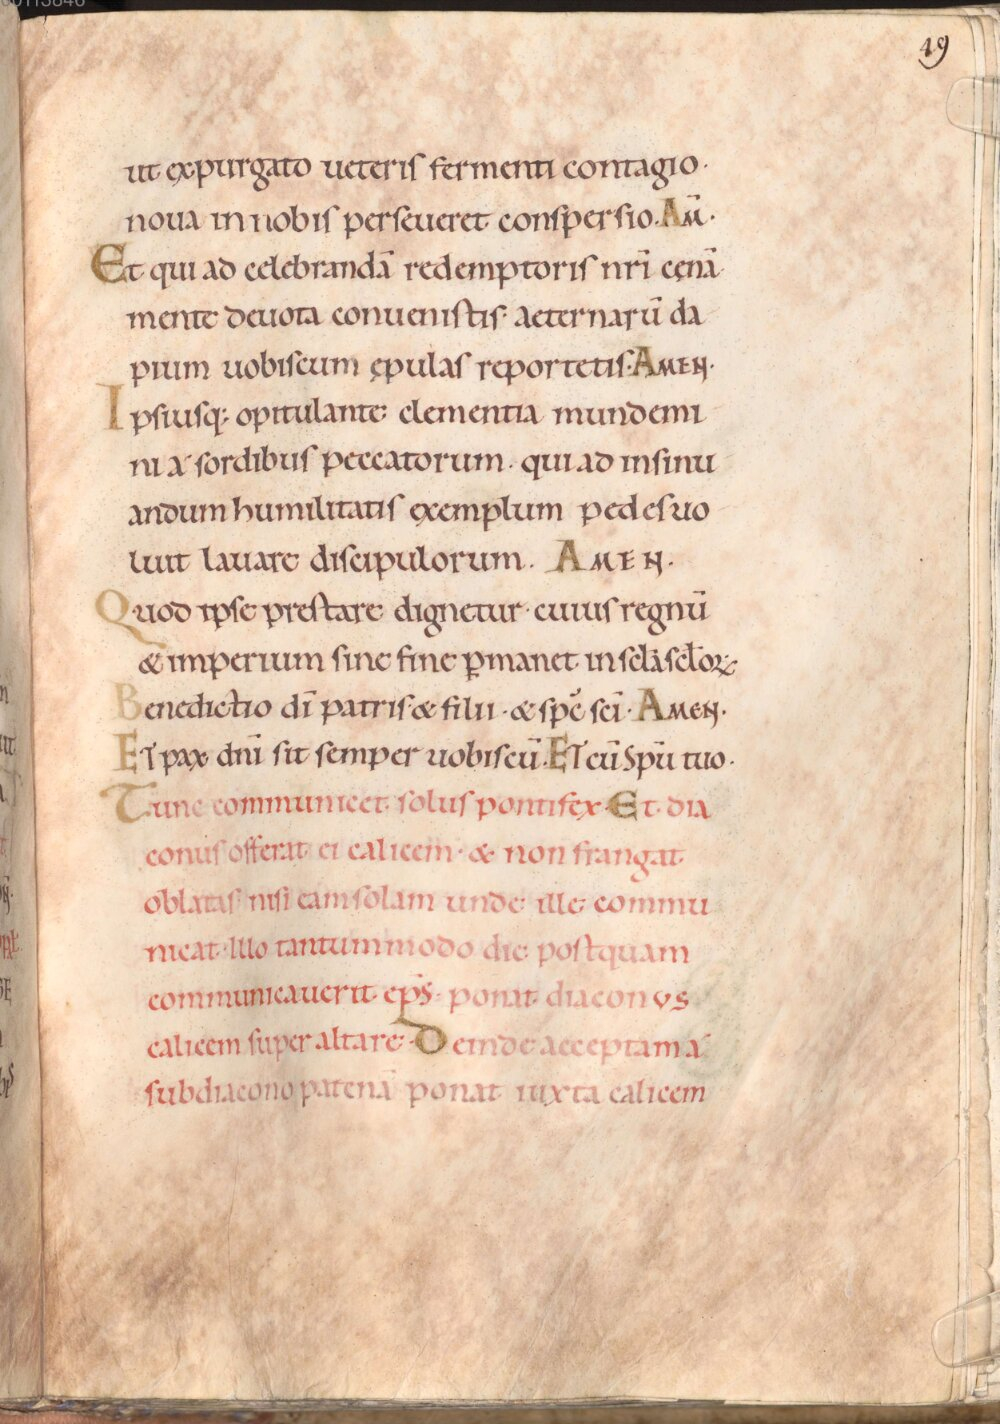 49
ut expurgato ueteris fermenti contagio·
noua in nobis perseueret conspersio. Am̄·
Et qui ad celebrandā redemptoris nr̄i cęnā
mente deuota conuenistis· aeternarū da
pium uobiscum ępulas reportetis· AMEN·
Ipsiusq; opitulante clementia mundemi
ni a sordibus peccatorum· qui ad insinu
andum humilitatis exemplum pedes uo
luit lauare discipulorum. AMEN·
Quod ipse prestare dignetur· cuius regnū
& imperium sine fine p̄manet in scl̄a scl̄oꝝ
Benedictio dī patris· & filii· & spc̄ sc̄i· AMEN·
ET pax dnī sit semper uobiscū· ET cū spū tuo·
Tunc communicet solus pontifex· Et dia
conus offerat ei calicem· & non frangat
oblatas nisi eam solam unde ille commu
nicat· Illo tantummodo die postquam
communicauerit ep̄s· ponat diaconus
calicem super altare· Deinde acceptam a
subdiacono patenā ponat iuxta calicem